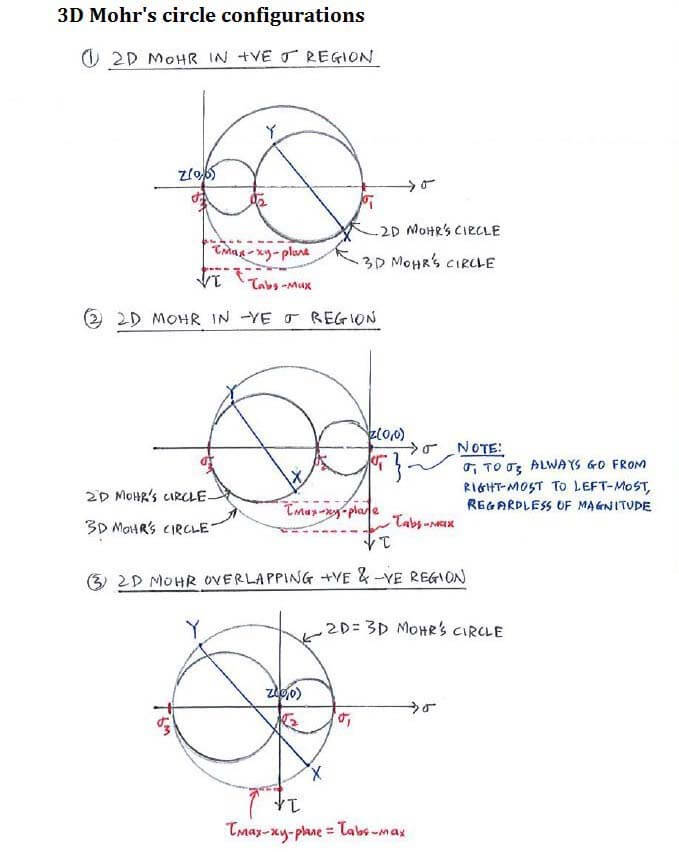 3D Mohr's circle configurations
① 2D MOHR IN +VE σ REGION
Y
Z(0,0)
σ
σ3
σ2
σ1
X
2D MOHR'S CIRCLE
τmax-xy-plane
3D MOHR'S CIRCLE
τ
τabs-max
② 2D MOHR IN -VE σ REGION
Y
Z(0,0)
σ
NOTE:
σ3
σ2
σ1
σ1 TO σ3 ALWAYS GO FROM
X
RIGHT-MOST TO LEFT-MOST,
2D MOHR'S CIRCLE
REGARDLESS OF MAGNITUDE
τmax-xy-plane
3D MOHR'S CIRCLE
τabs-max
τ
③ 2D MOHR OVERLAPPING +VE & -VE REGION
Y
2D = 3D MOHR'S CIRCLE
Z(0,0)
σ
σ3
σ2
σ1
X
τ
τmax-xy-plane = τabs-max